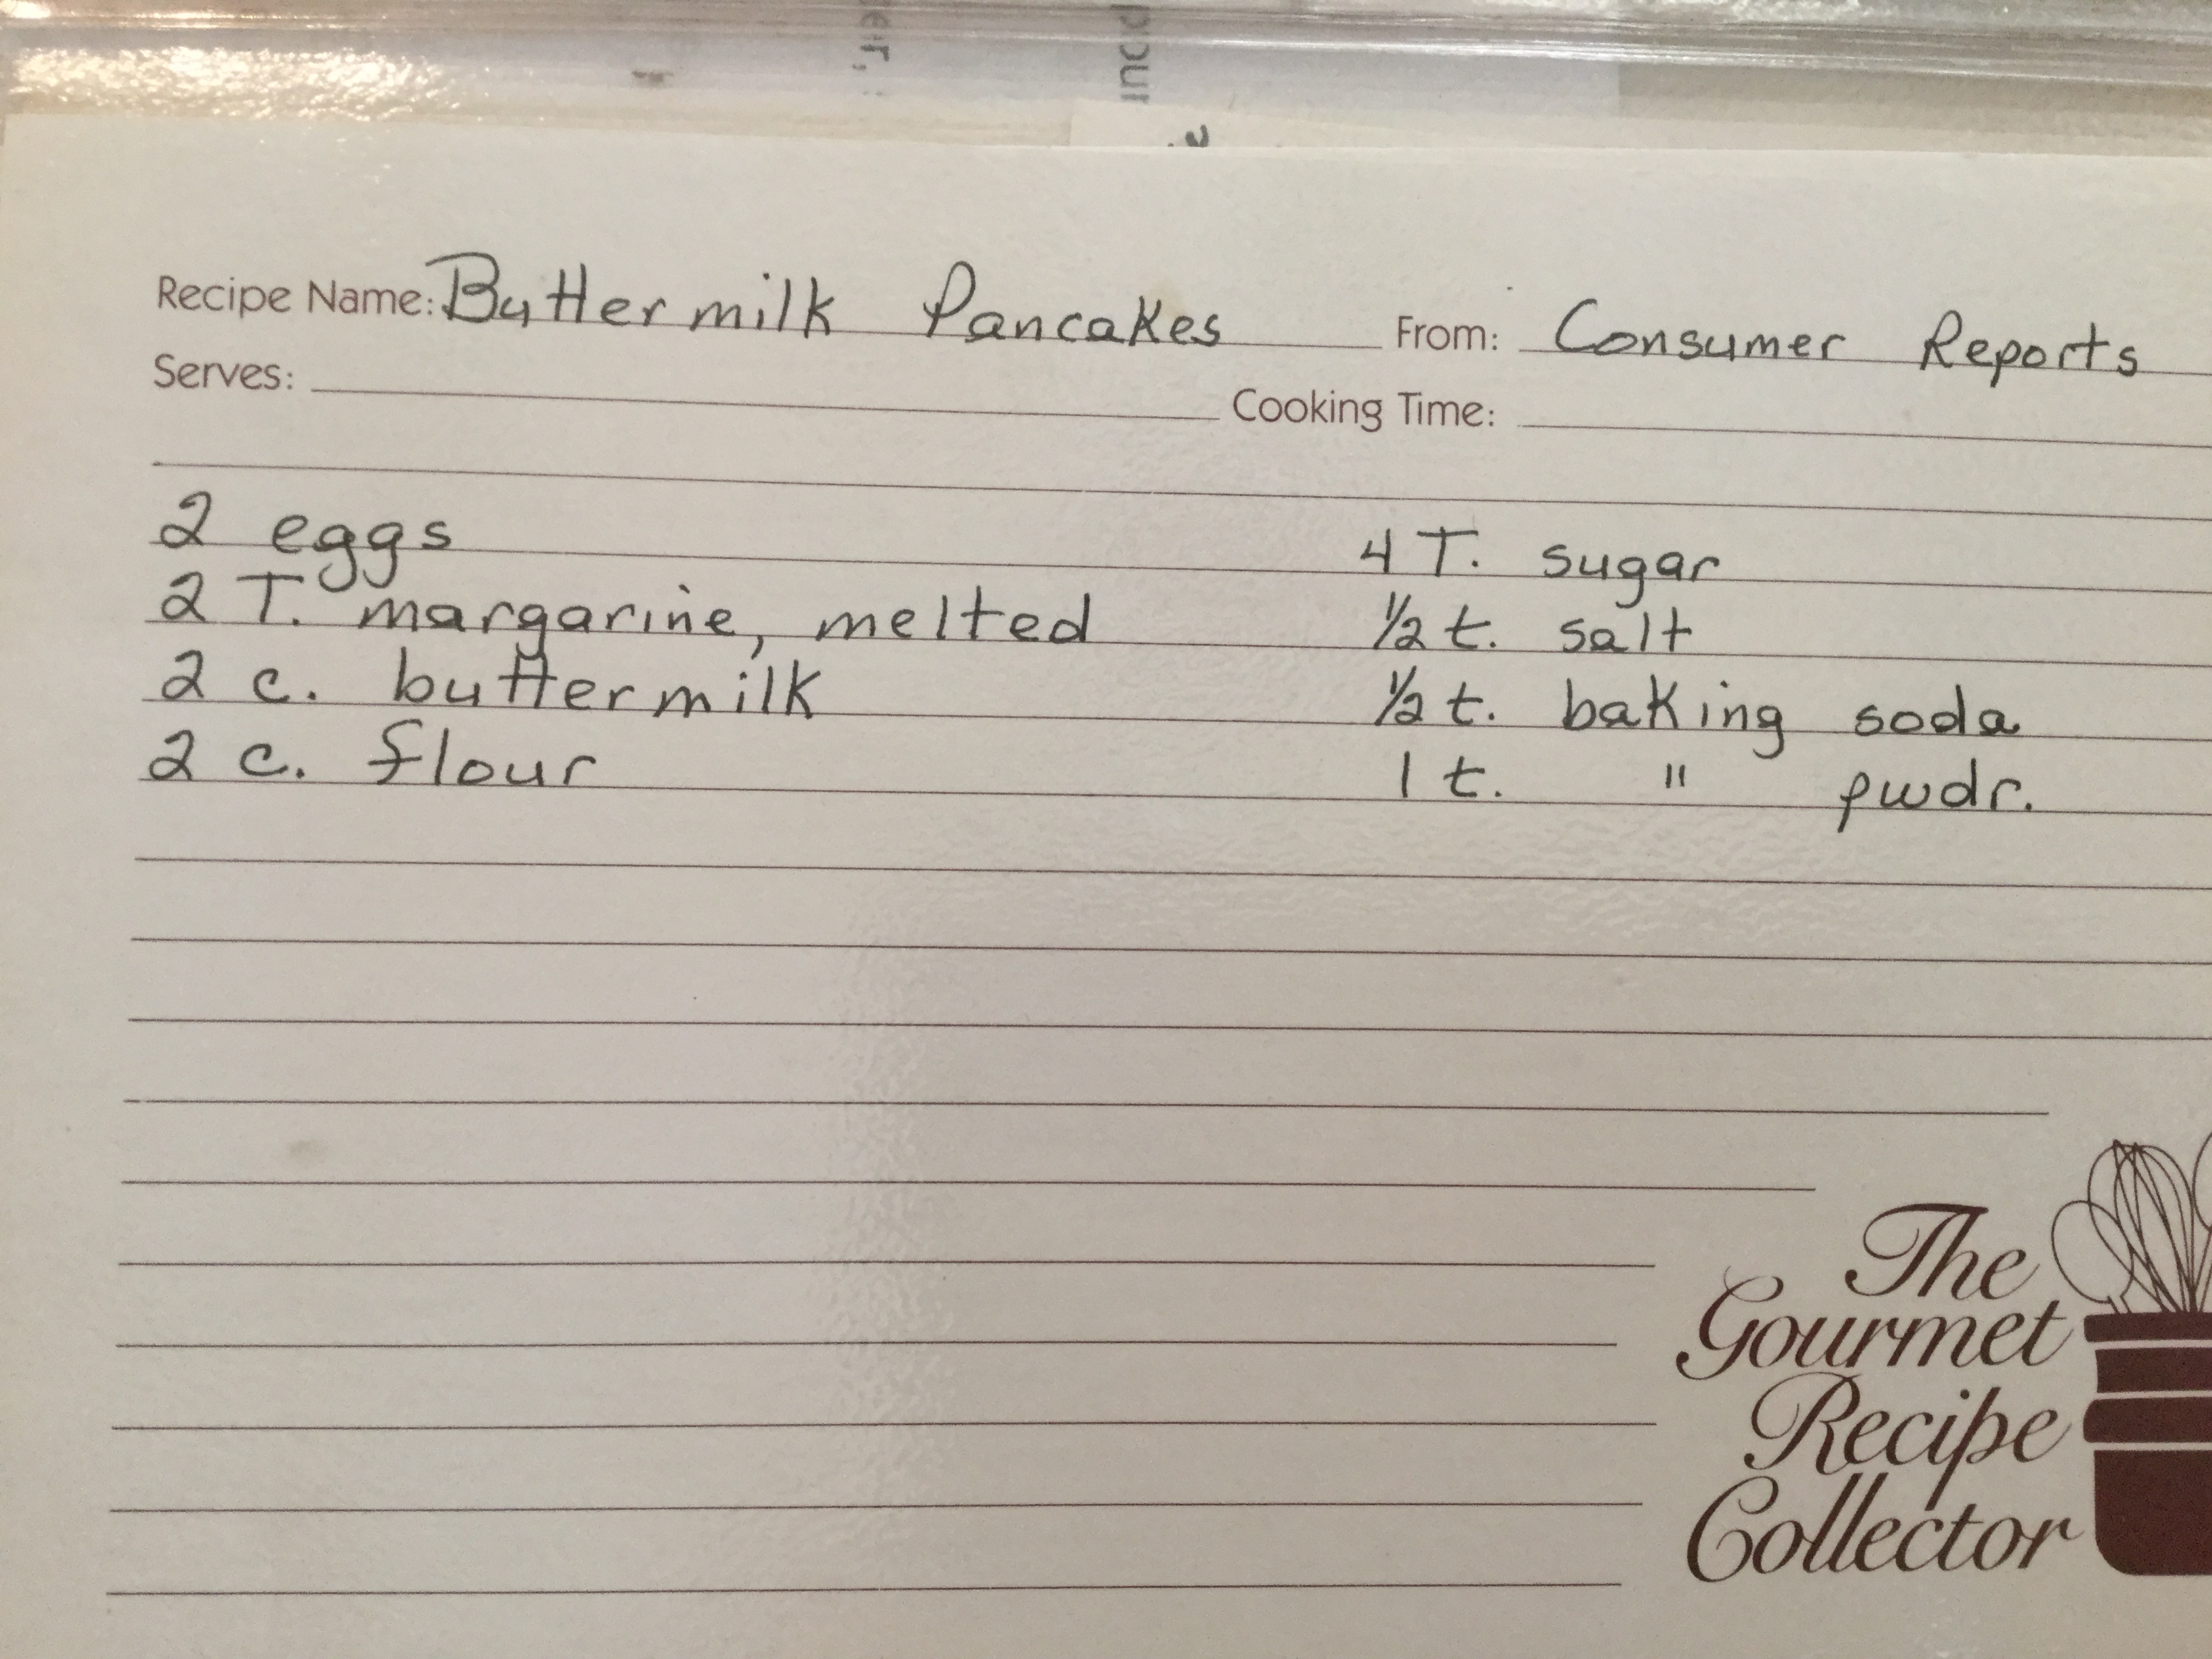 Recipe Name: Buttermilk Pancakes From: Consumer Reports
Serves: Cooking Time:
2 eggs
2 T. margarine, melted
2 c. buttermilk
2 c. flour
4 T. sugar
1/2 t. salt
1/2 t. baking soda
1 t. " pwdr.
The
Gourmet
Recipe
Collector